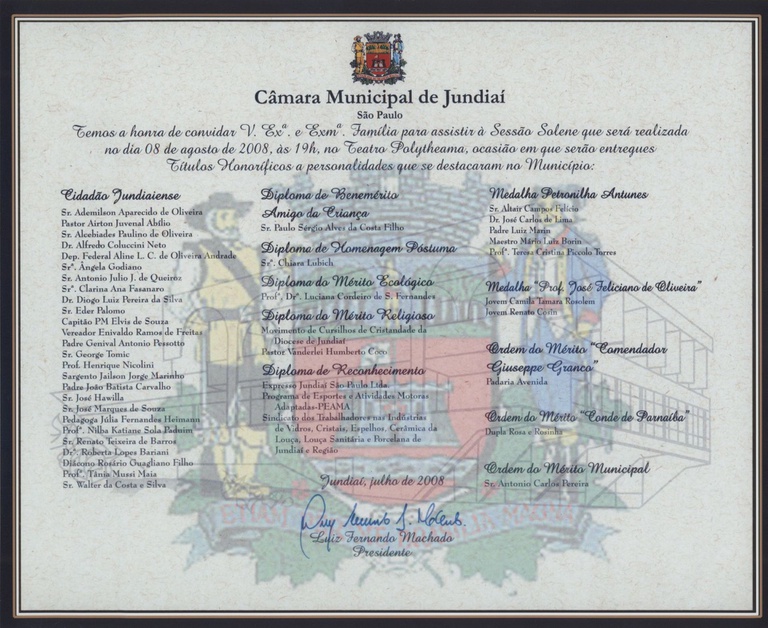 Câmara Municipal de Jundiaí
São Paulo
Temos a honra de convidar V. Exª. e Exmª. Família para assistir à Sessão Solene que será realizada
no dia 08 de agosto de 2008, às 19h, no Teatro Polytheama, ocasião em que serão entregues
Títulos Honoríficos a personalidades que se destacaram no Município:
Cidadão Jundiaiense
Sr. Ademilson Aparecido de Oliveira
Pastor Airton Juvenal Abílio
Sr. Alcebíades Paulino de Oliveira
Dr. Alfredo Coluccini Neto
Dep. Federal Aline L. C. de Oliveira Andrade
Srª. Ângela Godiano
Sr. Antonio Julio J. de Queiroz
Srª. Clarina Ana Fasanaro
Dr. Diogo Luiz Pereira da Silva
Sr. Eder Palomo
Capitão PM Elvis de Souza
Vereador Enivaldo Ramos de Freitas
Padre Genival Antonio Pessotto
Sr. George Tomic
Prof. Henrique Nicolini
Sargento Jailson Jorge Marinho
Padre João Batista Carvalho
Sr. José Hawilla
Sr. José Marques de Souza
Pedagoga Júlia Fernandes Heimann
Profª. Nilba Katiane Sola Paduim
Sr. Renato Teixeira de Barros
Drª. Roberta Lopes Bariani
Diácono Rosário Guagliano Filho
Profª. Tânia Mussi Maia
Sr. Walter da Costa e Silva
Diploma de Benemérito
Amigo da Criança
Sr. Paulo Sérgio Alves da Costa Filho
Diploma de Homenagem Póstuma
Srª. Chiara Lubich
Diploma do Mérito Ecológico
Profª. Drª. Luciana Cordeiro de S. Fernandes
Diploma do Mérito Religioso
Movimento de Cursilhos de Cristandade da
Diocese de Jundiaí
Pastor Vanderlei Humberto Coco
Diploma de Reconhecimento
Expresso Jundiaí São Paulo Ltda.
Programa de Esportes e Atividades Motoras
Adaptadas-PEAMA
Sindicato dos Trabalhadores nas Indústrias
de Vidros, Cristais, Espelhos, Cerâmica da
Louça, Louça Sanitária e Porcelana de
Jundiaí e Região
Medalha Petronilha Antunes
Sr. Altair Campos Felício
Dr. José Carlos de Lima
Padre Luiz Marin
Maestro Mário Luiz Borin
Profª. Teresa Cristina Piccolo Torres
Medalha "Prof. José Feliciano de Oliveira"
Jovem Camila Tamara Rosolem
Jovem Renato Cosin
Ordem do Mérito "Comendador
Giuseppe Granco"
Padaria Avenida
Ordem do Mérito "Conde de Parnaíba"
Dupla Rosa e Rosinha
Ordem do Mérito Municipal
Sr. Antonio Carlos Pereira
Jundiaí, julho de 2008
Luiz Fernando Machado
Presidente